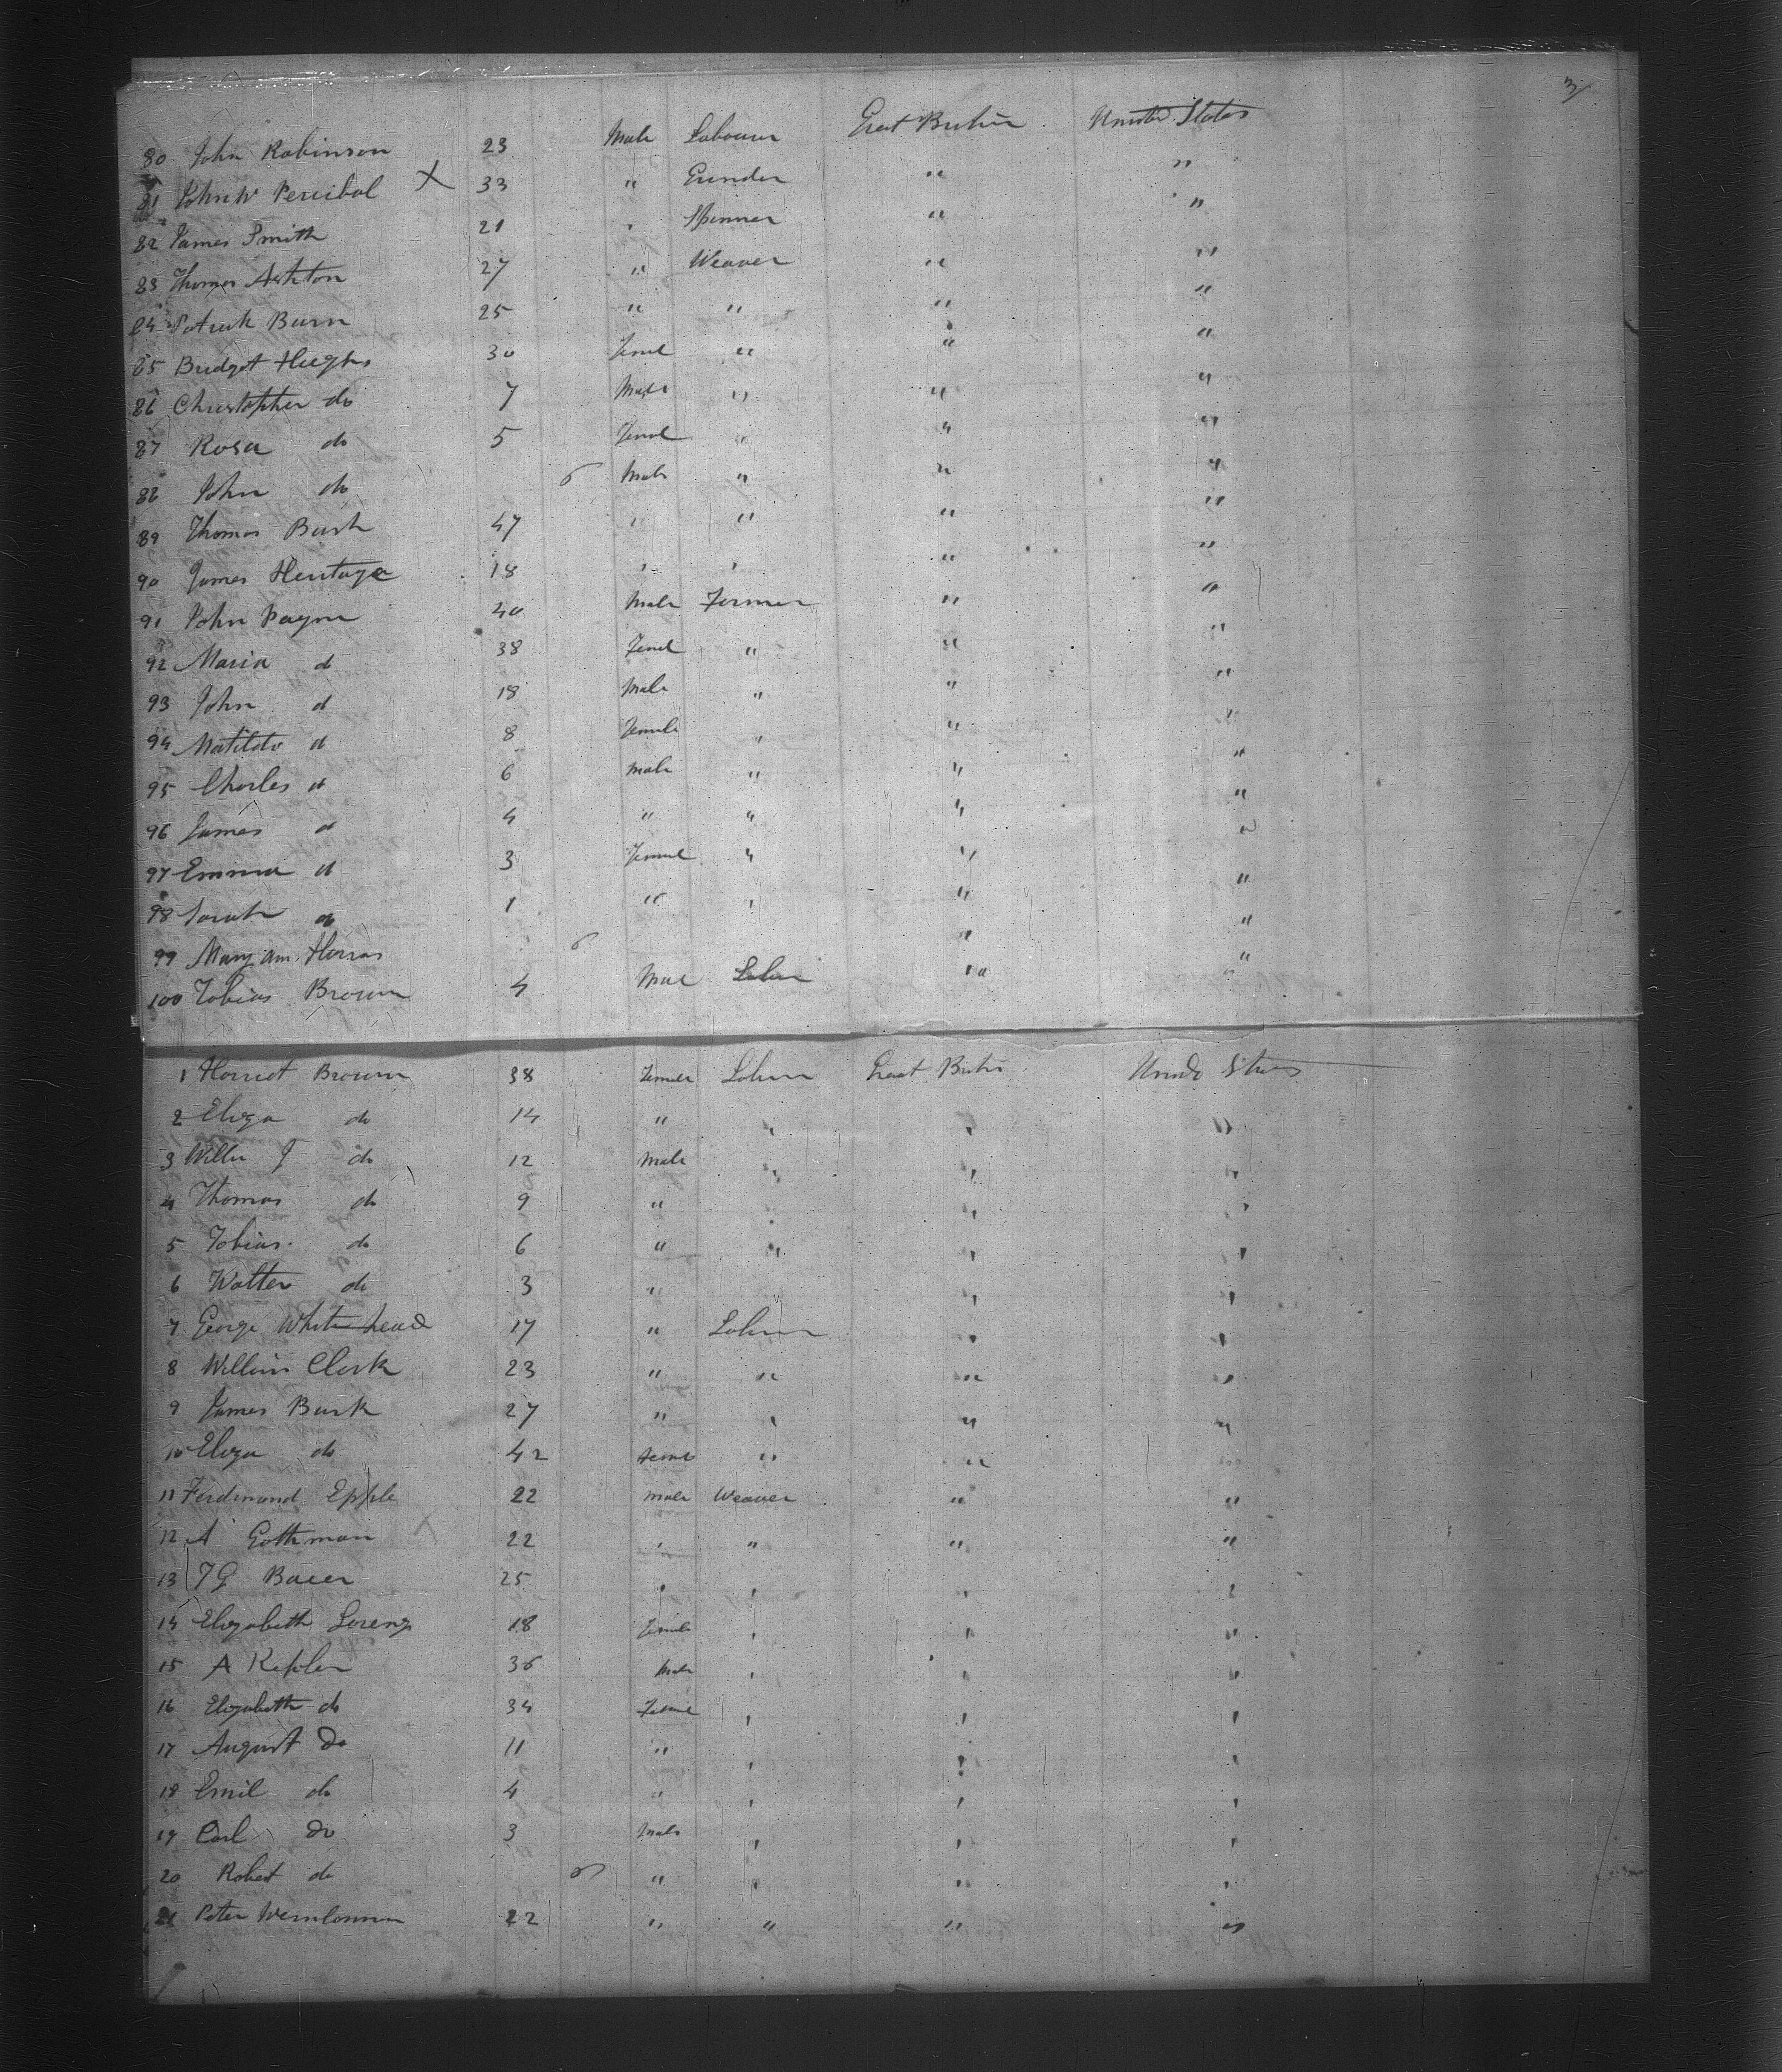 3
80 John Robinson 23 Male Labourer Great Britin United States
81 John W Percibal X 33 " Grinder " "
82 James Smith 21 " Spinner " "
83 Thomas Ashton 27 " Weaver " "
84 Patrick Burn 25 " " " "
85 Bridget Hughs 30 Femal " " "
86 Christopher do 7 Male " " "
87 Rosa do 5 Femal " " "
88 John do 6 Male " " "
89 Thomas Bark 47 " " " "
90 James Heritage 18 " " " "
91 John Payne 40 Male Farmer " "
92 Maria d 38 Femal " " "
93 John d 18 Male " " "
94 Matilda d 8 Female " " "
95 Charles d 6 Male " " "
96 James d 4 " " " "
97 Emma d 3 Femal " " "
98 Sarah do 1 " " " "
99 Mary am 6 " "
100 Tobias Brown 4 Mal " "
1 Harriet Brown 38 Female Great
2 Eliza do 14 " " " "
3 J do 12 Male " " "
4 Thomas do 9 " " "
5 Tobias do 6 " " " "
6 Walter do 3 " " "
7 George Whitehead 17 " " "
8 William Clark 23 " " " "
9 James Burk 27 " " " "
10 Eliza do 42 Femal " " "
11 Ferdinand Epple 22 Male Weaver " "
12 A Gothman 22 " " " "
13 Bauer 25 " " " "
14 Elizabeth Lorenz 18 Female " " "
15 A Kepler 36 Male " " "
16 Elizabeth do 34 Femal " " "
17 August Do 11 " " " "
18 Emil do 4 " " " "
19 Carl Do 3 Male " " "
20 Robert do 6 " " " "
21 Peter 22 " " " "